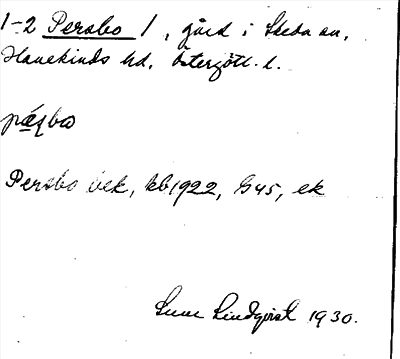 1-2 Persbo /, gård i Skeda sn,
Hanekinds hd, Östergötl. l.
pä̱ʂbo
Persbo bek, kb1922, G45, ek
Sune Lindqvist 1930.